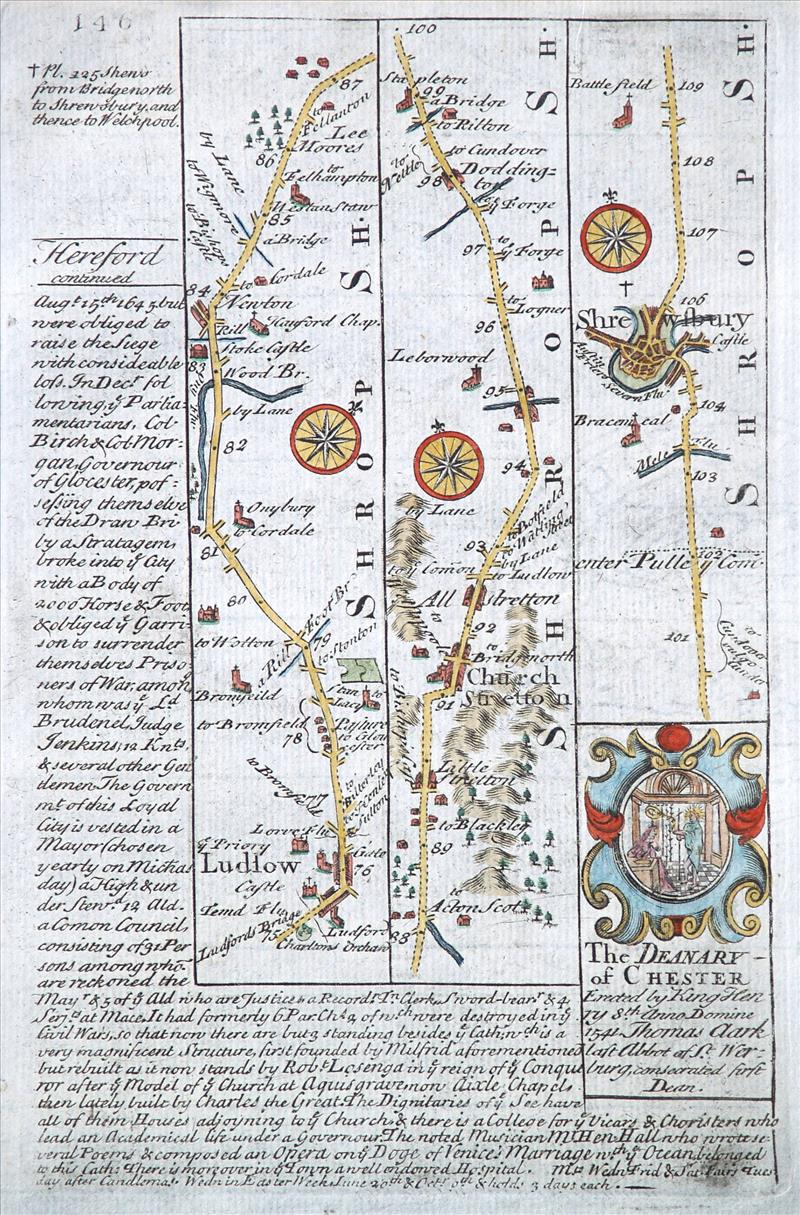 146
† Pl. 125 Shews
from Bridgenorth
to Shrewsbury, and
thence to Welchpool.
Hereford
continued
Augt. 15th 1645 but
were obliged to
raise the Siege
with considerable
loss. In Decr. fol
lowing, ye Parlia-
mentarians, Col.
Birch & Col. Mor-
gan, Governour
of Glocester, pos-
sessing themselve
of the Draw Bri
by a Stratagem,
broke into ye City
with a Body of
2000 Horse & Foot
& obliged ye Garri-
son to surrender
themselves Priso-
ners of War, among
whom was ye Ld.
Brudenel, Judge
Jenkins, 12 Knts.
& several other Gen
tlemen. The Govern
mt. of this Loyal
City is vested in a
Mayor (chosen
yearly on Michas
day) a High & un
der Stewd. 12 Ald.
a Comon Council
consisting of 31 Per
sons among whō
are reckoned the
Mayr. & 5 of ye Ald who are Justices a Recordr. Tn. Clerk, Sword-bearr. & 4
Serjts. at Mace. It had formerly 6 Par Chs. 2 of wch. were destroyed in ye
Civil Wars, so that now there are but 4 standing besides ye Cath: wch. is a
very magnificent Structure, first founded by Milfrid aforementioned
but rebuilt as it now stands by Robt. Losenga in ye reign of ye Conque
ror after ye Model of ye Church at Aquisgrave now Aixle Chapels
then lately built by Charles the Great. The Dignitaries of ye See have
all of them Houses adjoyning to ye Church & there is a College for ye Vicars & Choristers who
lead an Academical life under a Governour. The noted Musician Mr. Hen. Hall who wrote se-
veral Poems & composed an Opera on ye Doge of Venice's Marriage wth. ye Ocean, belonged
to this Cath: There is moreover in ye Town a well endowed Hospital. Mts. Wedn Frid & Sat. Fairs Tues
day after Candlemas. Wedn in Easter Week, June 20th & Octr. 9th & holds 3 days each.
87
to Fellanton
Lee
Moores
86
to
Felhampton
by Lane
to Wigmore
to Bishops
Castle
Westanstaw
85
a Bridge
84
to Cordale
Newton
Rill
Hawford Chap.
Stoke Castle
83
Wood Br.
by Lane
82
Onybury
to Cordale
81
80
Foot Br.
to Wotton
79
a Rill
to Stonton
Bromfeild
Stan
Lacy
to Bromfield
78
Pasture
to Glou
cester
to Bromfield
to Buterley
Lorve Flu
ye Priory
Gate
76
Ludlow
Castle
Temd Flu
Ludfords Bridge
75
Ludford
Charltons Orchard
SHROPSH.
100
Stapleton
99
a Bridge
to Rilton
to Cundover
to Nettle
98
Dodding-
ton
to
ye Forge
97
to
ye Forge
to
Logner
96
Leborwood
95
94
by Lane
to Botfield
to Watling
Street
93
by Lane
to ye Comon
to Ludlow
All Stretton
92
to Bridgenorth
Church
Stretton
91
to Bishops
Little
Stretton
to Blackley
89
to
Acton Scot
88
SHROPSH.
Battlefield
109
108
107
106
Shrewsbury
Castle
Severn Flu
104
Bracemeal
Mele Flu
103
102
enter Pulley Com.
101
SHROPSH.
The DEANARY
of CHESTER
Erected by King Hen
ry 8th Anno Domine
1541 Thomas Clark
last Abbot of St. Wer-
burg, consecrated first
Dean.